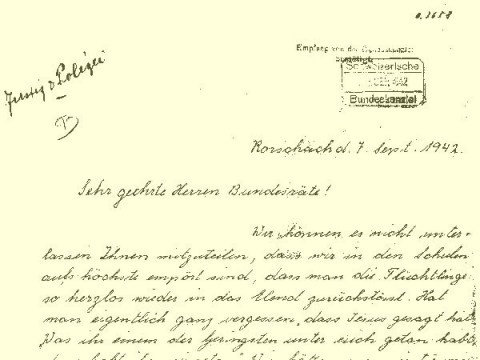 o.1658
Empfang von der Bundeskanzlei
bestätigt
Schweizerische
Bundeskanzlei
Justiz & Polizei
Rorschach d. 7. Sept. 1942.
Sehr geehrte Herren Bundesräte!
Wir können es nicht unter-
lassen Ihnen mitzuteilen, dass wir in den Schulen
aufs höchste empört sind, dass man die Flüchtlinge
so herzlos wieder in das Elend zurückstösst. Hat
man eigentlich ganz vergessen, dass Jesus gesagt hat
Was ihr einem der Geringsten unter euch getan habt